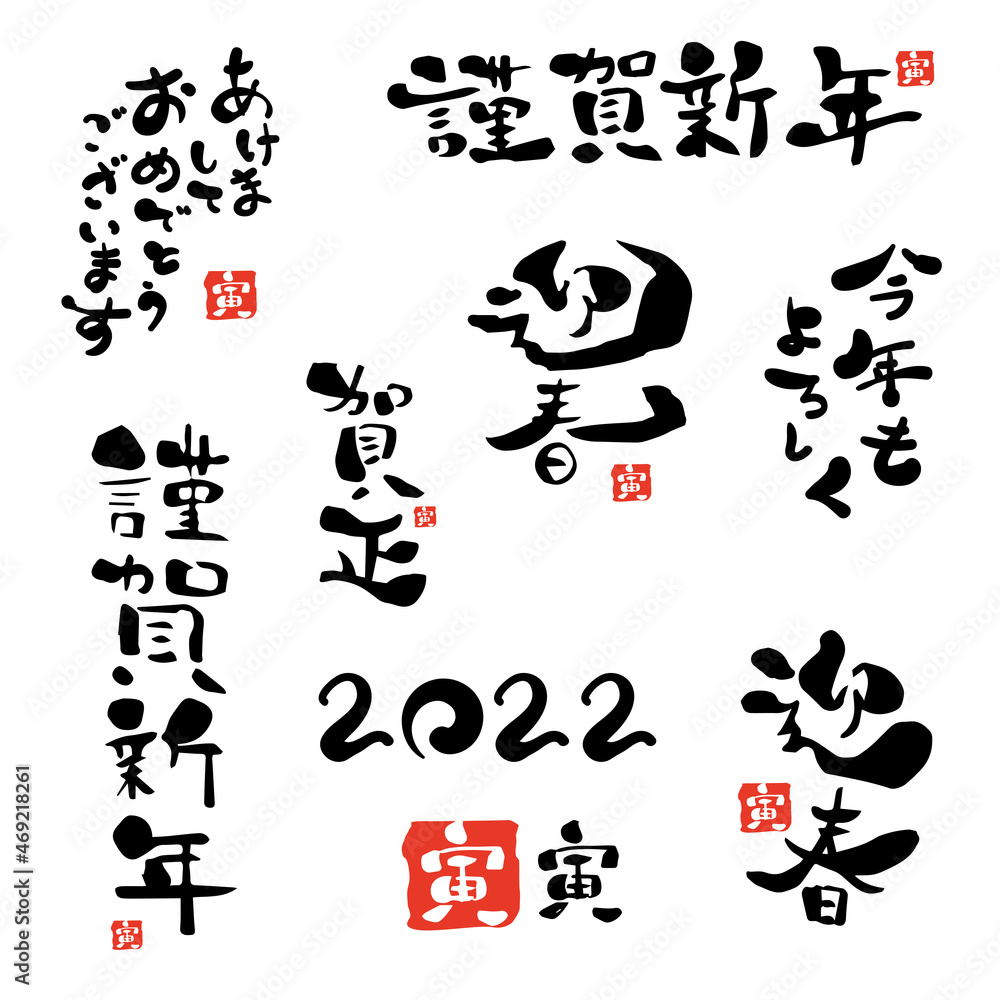 あけま
して
おめでとう
ございます
寅
謹賀新年
寅
迎春
寅
今年も
よろしく
賀正
寅
謹賀新年
寅
2022
寅
寅
迎春
寅
Adobe Stock | #469218261